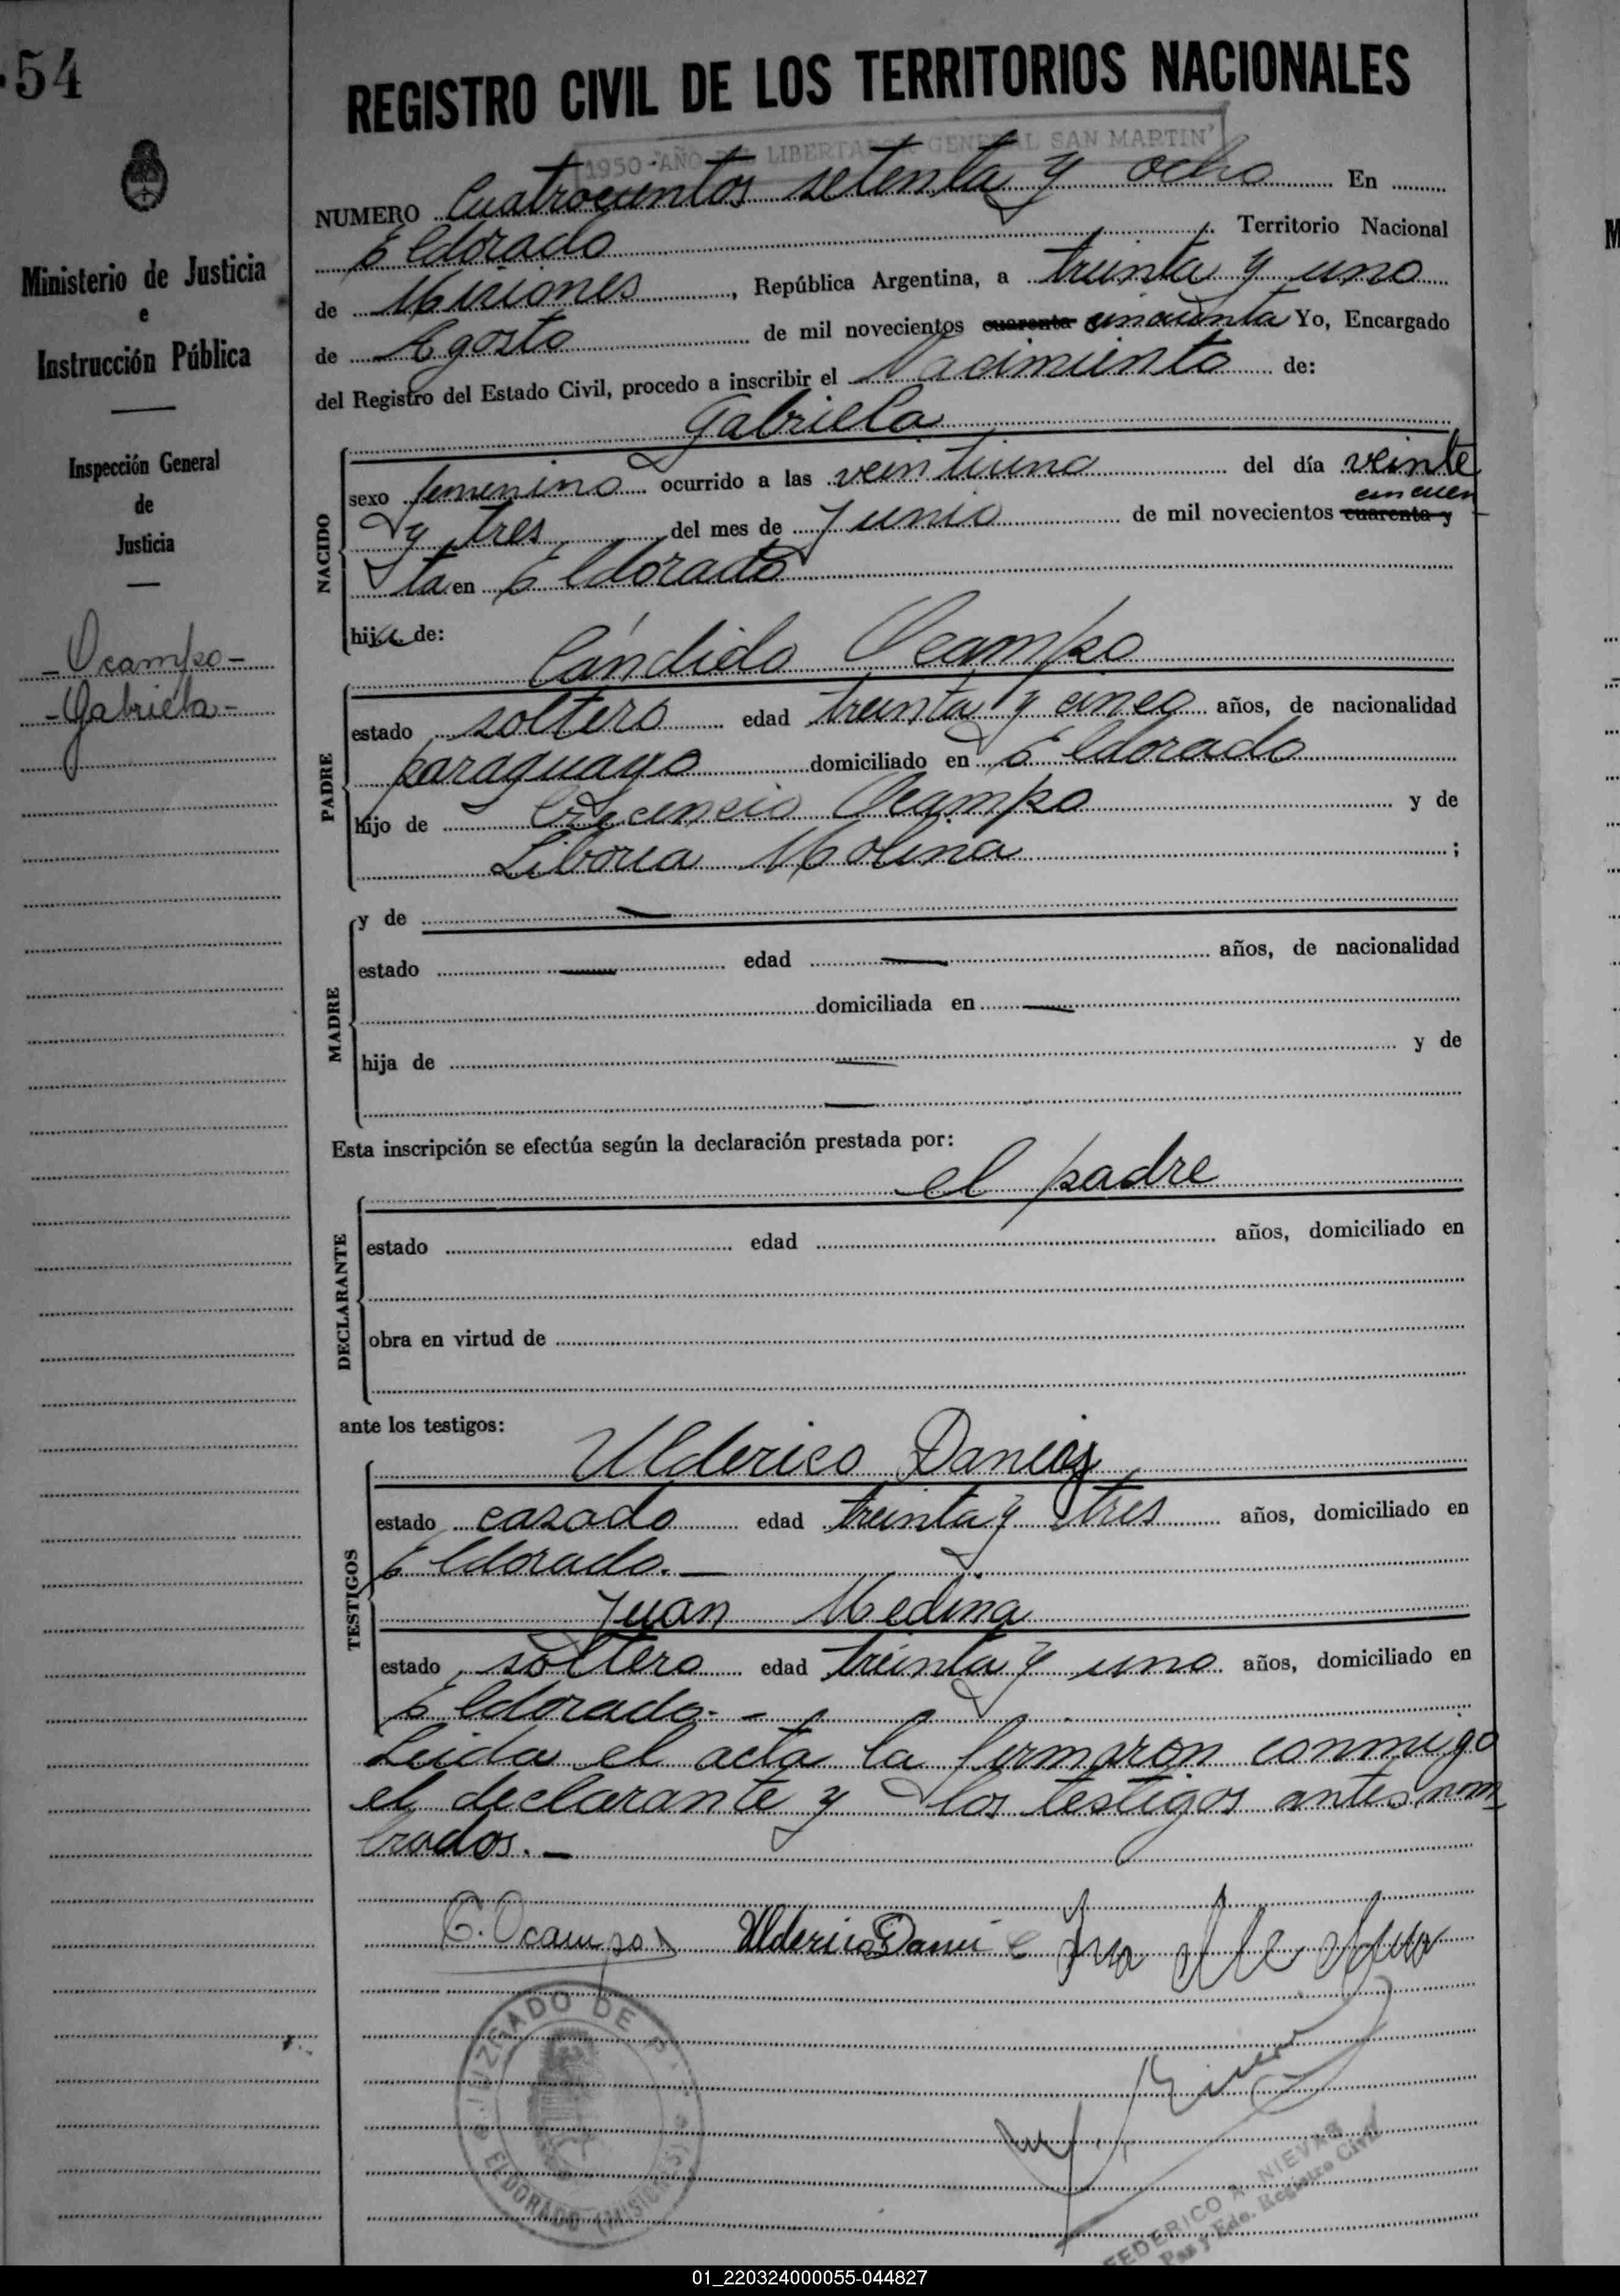 54
REGISTRO CIVIL DE LOS TERRITORIOS NACIONALES
1950 - AÑO DEL LIBERTADOR GENERAL SAN MARTIN
Ministerio de Justicia
e
Instrucción Pública
Inspección General
de
Justicia
- Ocampo -
- Gabriela -
NUMERO Cuatrocientos setenta y ocho En
Eldorado Territorio Nacional
de Misiones, República Argentina, a treinta y uno
de Agosto de mil novecientos cuarenta cincuenta Yo, Encargado
del Registro del Estado Civil, procedo a inscribir el Nacimiento de:
Gabriela
NACIDO
sexo femenino ocurrido a las veintiuna del día veinte
cincuen
y tres del mes de Junio de mil novecientos cuarenta y
ta en Eldorado
hija de:
Cándido Ocampo
PADRE
estado soltero edad treinta y cinco años, de nacionalidad
paraguayo domiciliado en Eldorado
hijo de Crecencio Ocampo y de
Liboria Molina ;
MADRE
y de —
estado — edad — años, de nacionalidad
domiciliada en —
hija de — y de
—
Esta inscripción se efectúa según la declaración prestada por:
el padre
DECLARANTE
estado edad años, domiciliado en
obra en virtud de
ante los testigos:
TESTIGOS
Ulderico
estado casado edad treinta y tres años, domiciliado en
Eldorado. —
Juan Medina
estado soltero edad treinta y uno años, domiciliado en
Eldorado. -
Leida el acta la firmaron conmigo
el declarante y los testigos antes nom
brados. —
C. Ocampo Ulderico
JUZGADO DE P
ELDORADO (MISIONES)
FEDERICO A. NIEVAS
Paz y Edo. Registro Civil
01_220324000055-044827